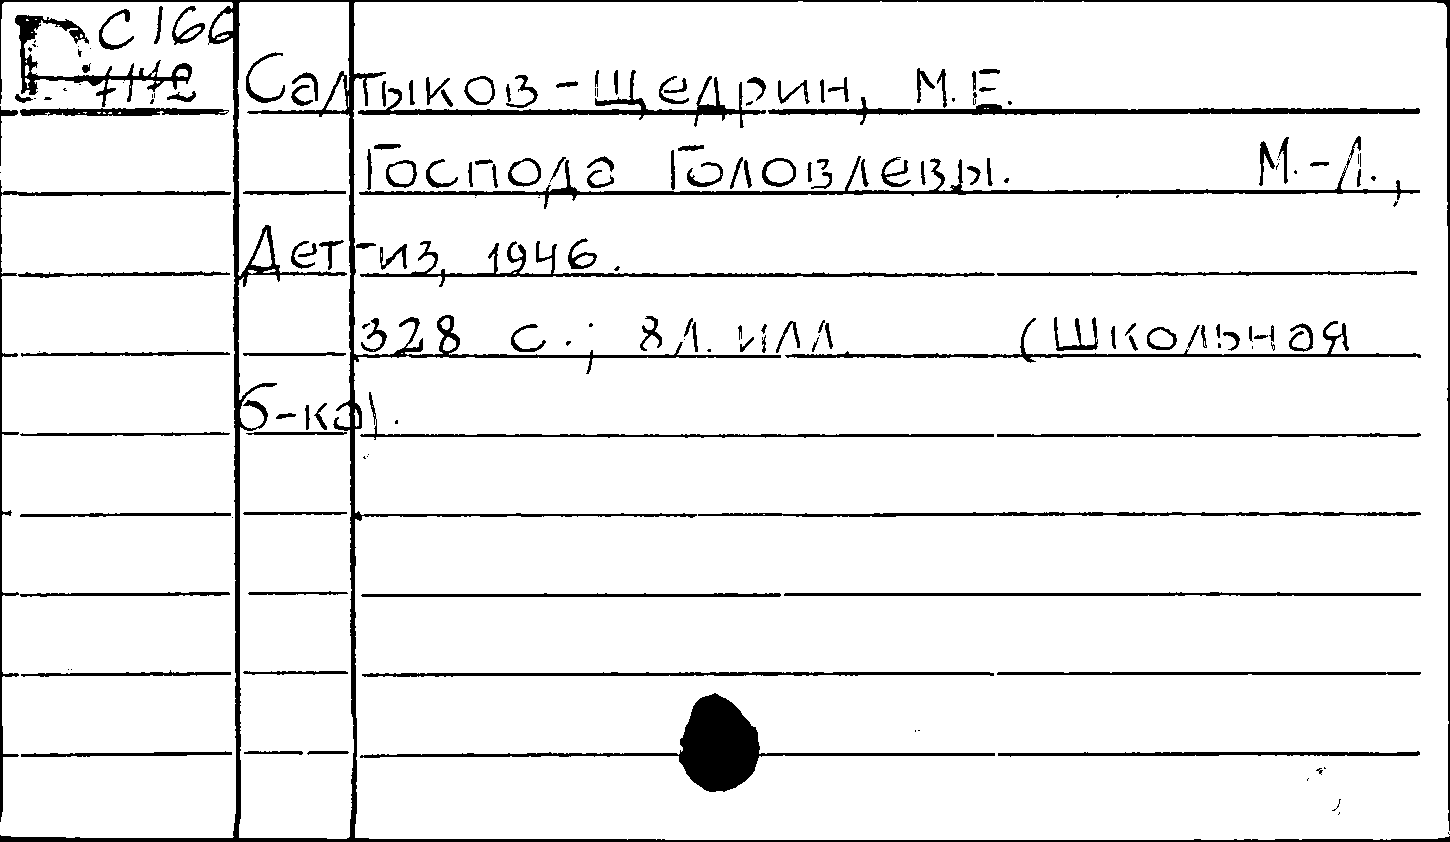 D С 166
7172
Салтыков-Щедрин, М.Е.
Господа Головлевы. М.-Л.,
Детгиз, 1946.
328 с.; 8 л. илл. (Школьная
б-ка).